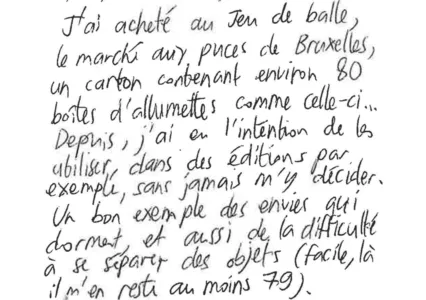 J'ai acheté au Jeu de balle,
le marché aux puces de Bruxelles,
un carton contenant environ 80
boîtes d'allumettes comme celle-ci...
Depuis, j'ai eu l'intention de les
utiliser, dans des éditions par
exemple, sans jamais m'y décider.
Un bon exemple des envies qui
dorment, et aussi de la difficulté
à se séparer des objets (facile, là
il m'en reste au moins 79).